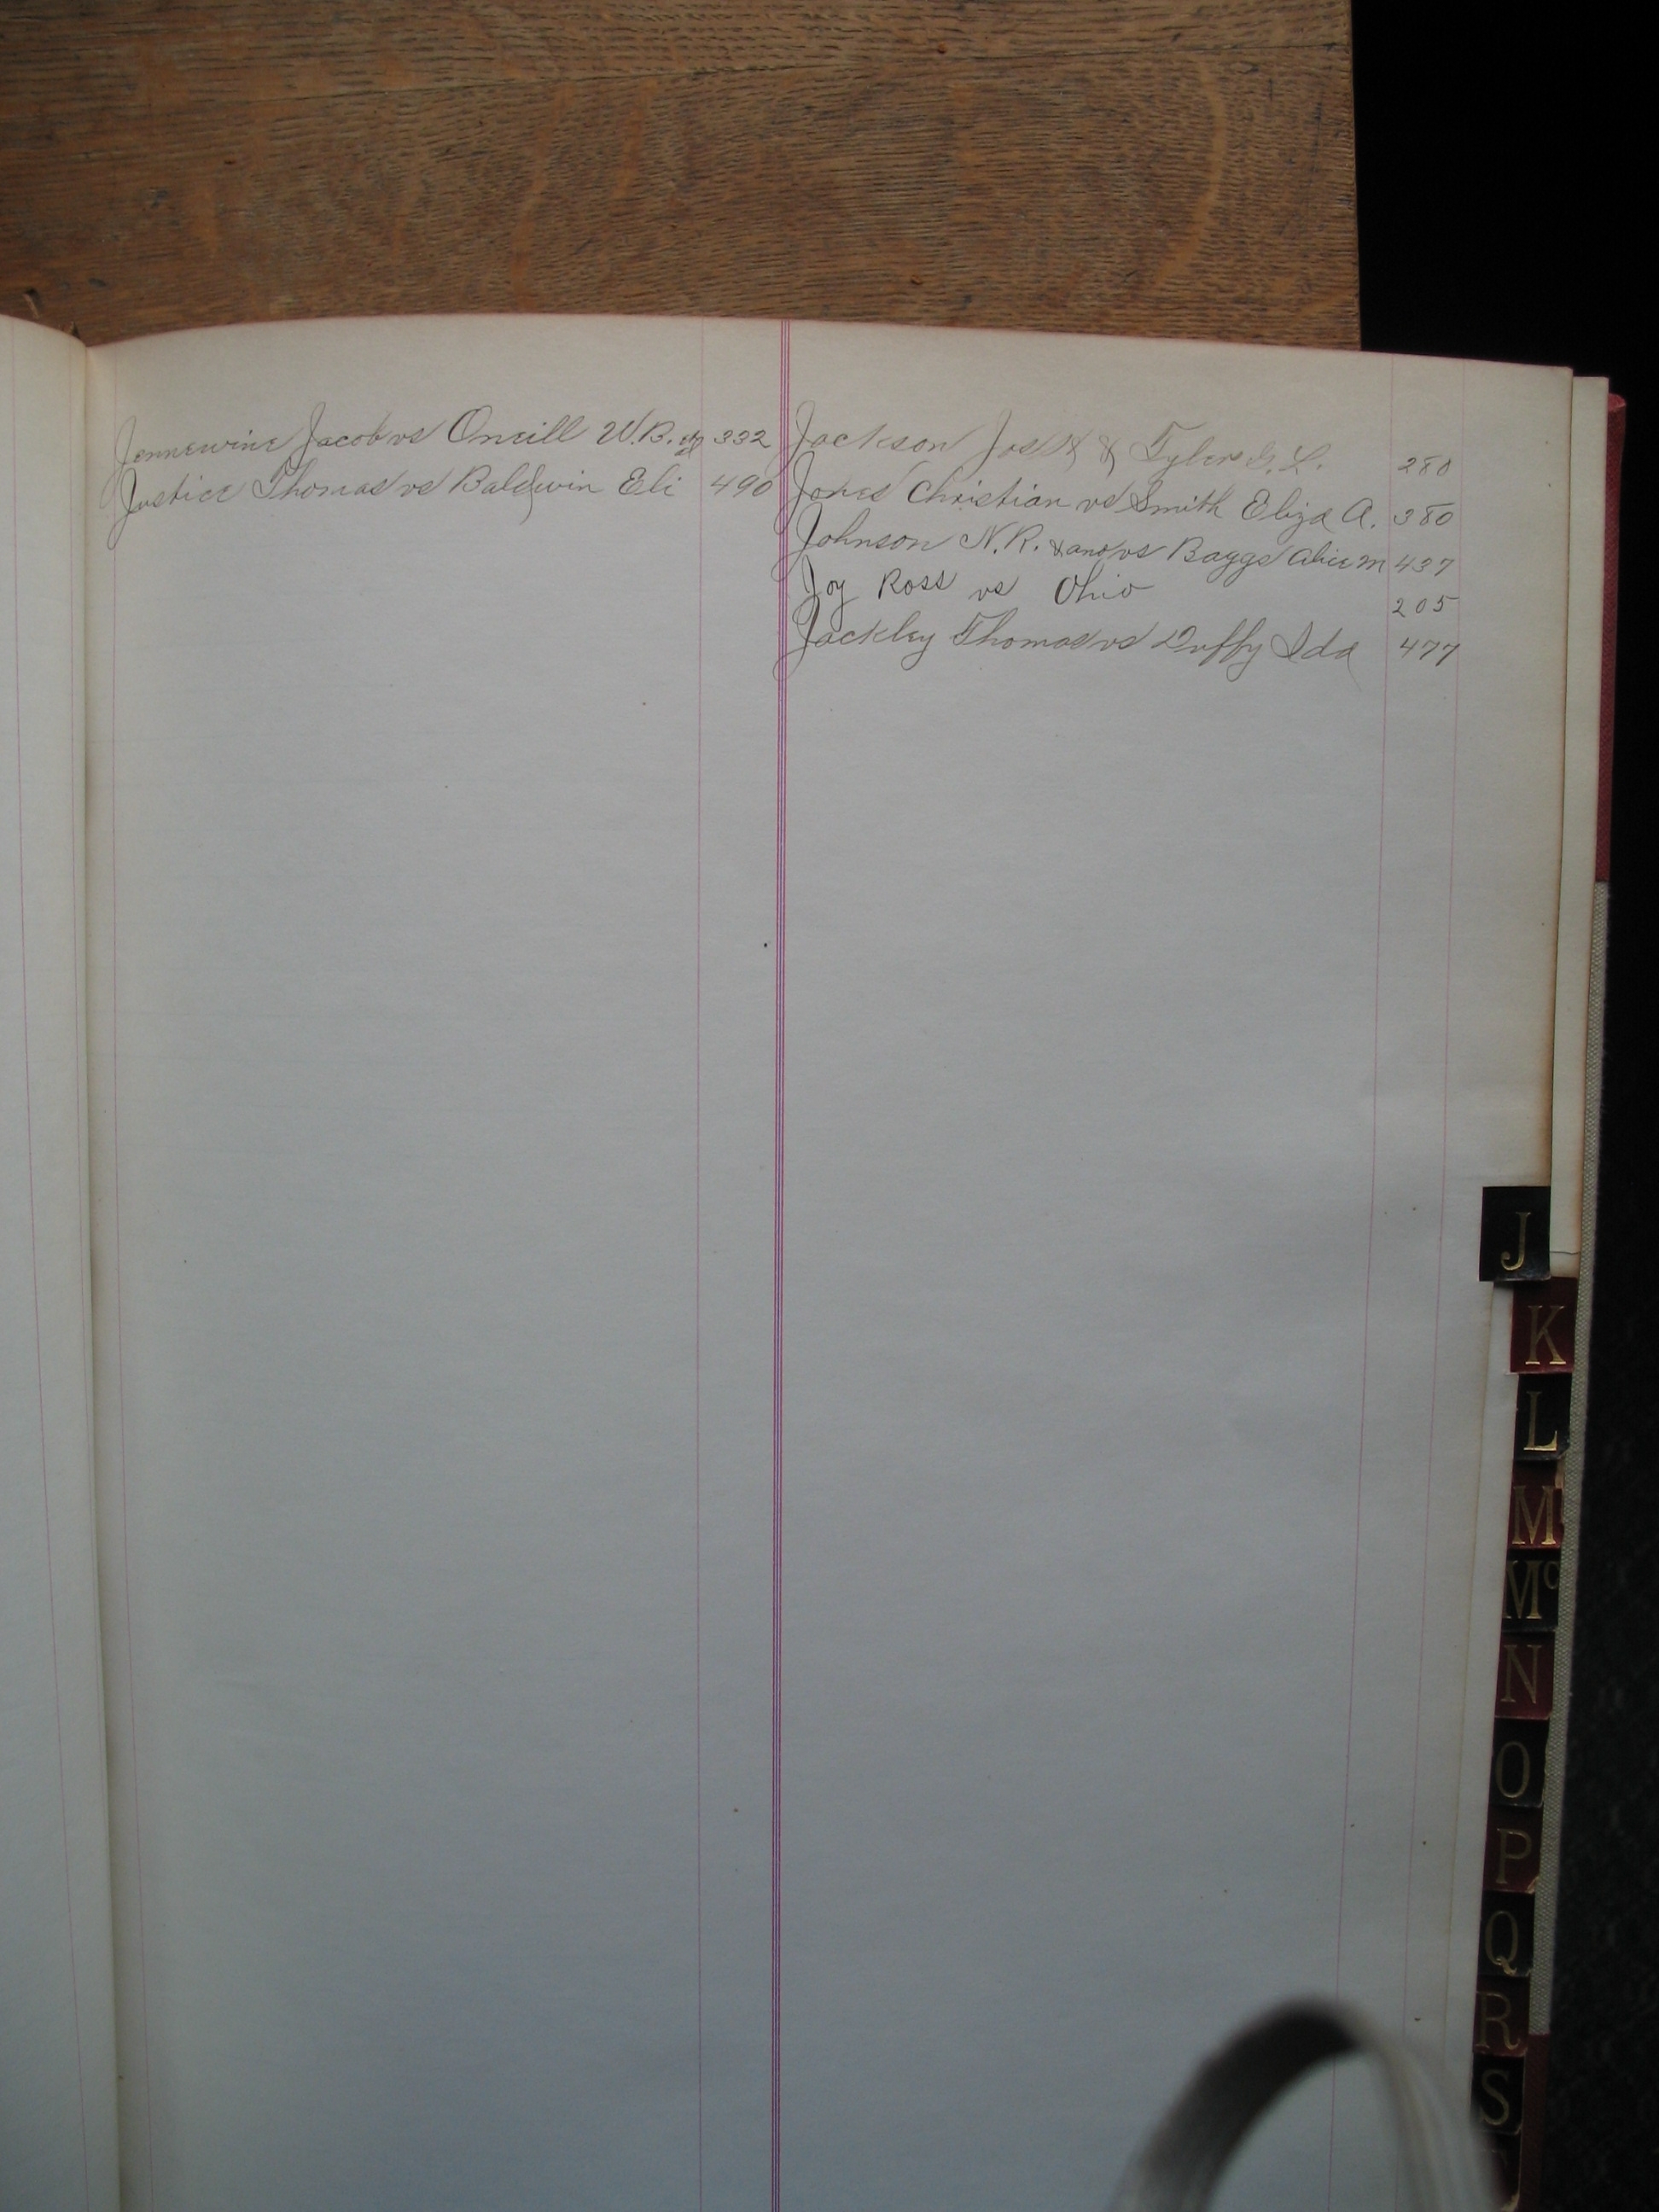 Jennewine Jacob vs Oneill W.B. 332
Justice Thomas vs Baldwin Eli 490
Jackson Jos & Tyler G. L. 280
Jones Christian vs Smith Eliza A. 380
Johnson N.R. & ano vs Baggs Alice M 437
Joy Ross vs Ohio 205
Jackley Thomas vs Duffy Ida 477
J
K
L
M
Mc
N
O
P
Q
R
S